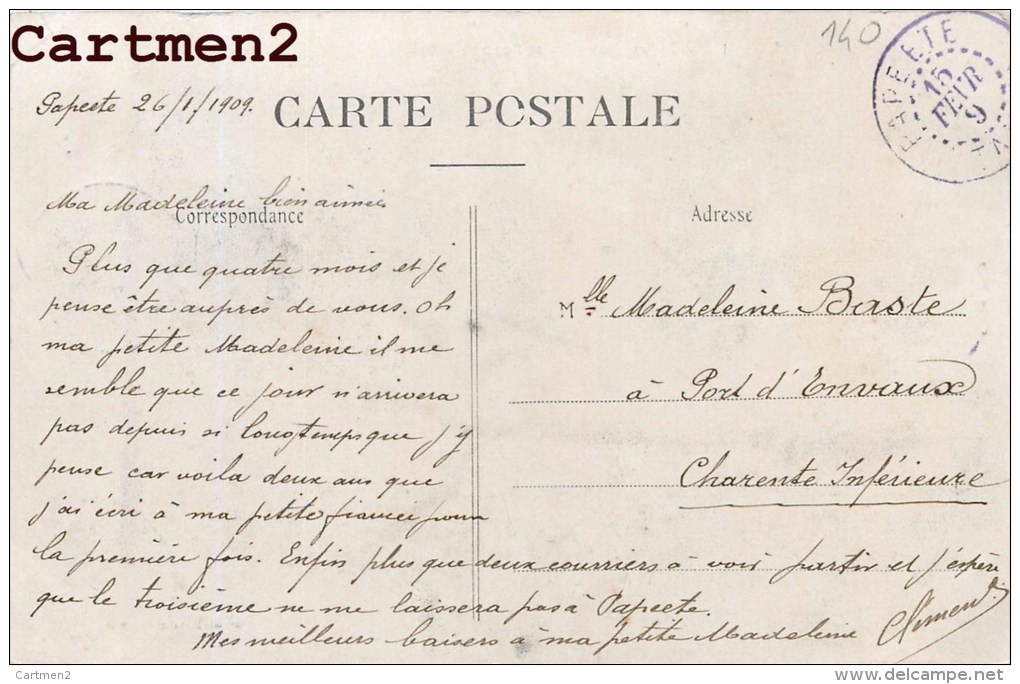 Cartmen2
140
PAPEETE
15
FEVR
9
Papeete 26/1/1909.
CARTE POSTALE
Ma Madeleine bien aimée
Correspondance
Adresse
Plus que quatre mois et je
pense être auprès de vous. Oh
ma petite Madeleine il me
semble que ce jour n'arrivera
pas depuis si longtemps que j'y
pense car voila deux ans que
j'ai écri à ma petite fiancée pour
la première fois. Enfin plus que deux courriers à voir partir et j'espère
que le troisième ne me laissera pas à Papeete.
Mes meilleurs baisers à ma petite Madeleine
Clément
Mlle Madeleine Baste
à Port d'Envaux
Charente Inférieure
Cartmen2
www.delcampe.net